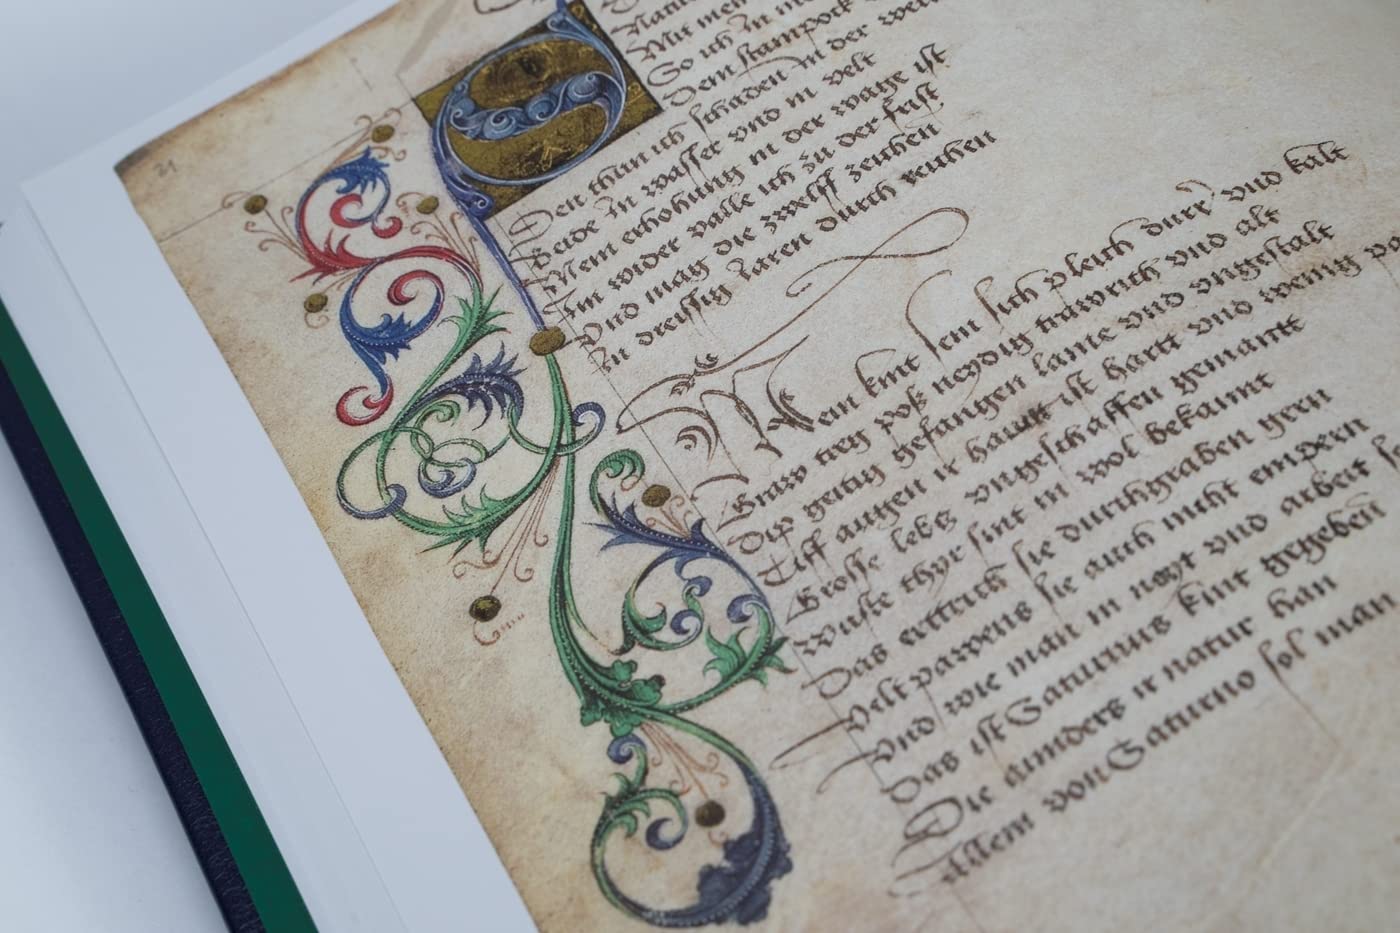 21
Mit mein
So ich in me
Dem stampock
Den thun ich schaden in der welt
Beide in wasser vnd in velt
Mein erhohung in der wage ist
Im wider valle ich zu der frist
Vnd mag die zwelff zeichen
In dreissig Jaren durch reichen
Mein kint sein sich pleich durr vnd kalt
Graw treg poß neydig trawrich vnd alt
Dip geitig gefangen lame vnd vngestalt
Tiff augen ir hawt ist hartt vnd wenig
Grosse lebs vngeschaffen gemantt
Wuste thyr sint in wol bekaint
Das ertrich sie durchgraben gern
Velt pawens sie auch nicht empern
Vnd wie man in noyt vnd arbeit
Das ist Saturnus kint gegeben
Die annders ir natur han
Allein von Saturno sol man